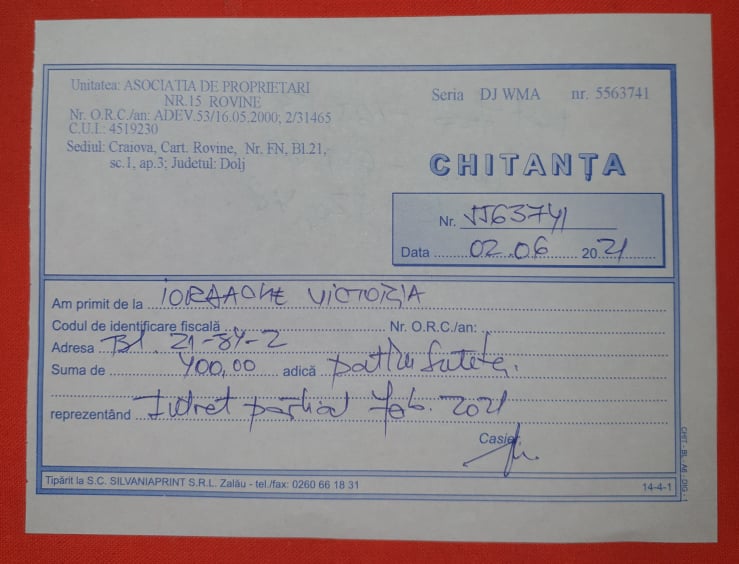 Unitatea: ASOCIATIA DE PROPRIETARI
NR.15 ROVINE
Nr. O.R.C./an: ADEV.53/16.05.2000; 2/31465
C.U.I.: 4519230
Sediul: Craiova, Cart. Rovine, Nr. FN, Bl.21,
sc.1, ap.3; Judetul: Dolj
Seria DJ WMA nr. 5563741
CHITANȚA
Nr. 5563741
Data 02.06 2021
Am primit de la IORDACHE VICTORIA
Codul de identificare fiscală Nr. O.R.C./an:
Adresa Bl. 21-84-2
Suma de 400,00 adică patru sute
reprezentând Intret parțial feb. 2021
Casier,
Tipărit la S.C. SILVANIAPRINT S.R.L. Zalău - tel./fax: 0260 66 18 31 14-4-1